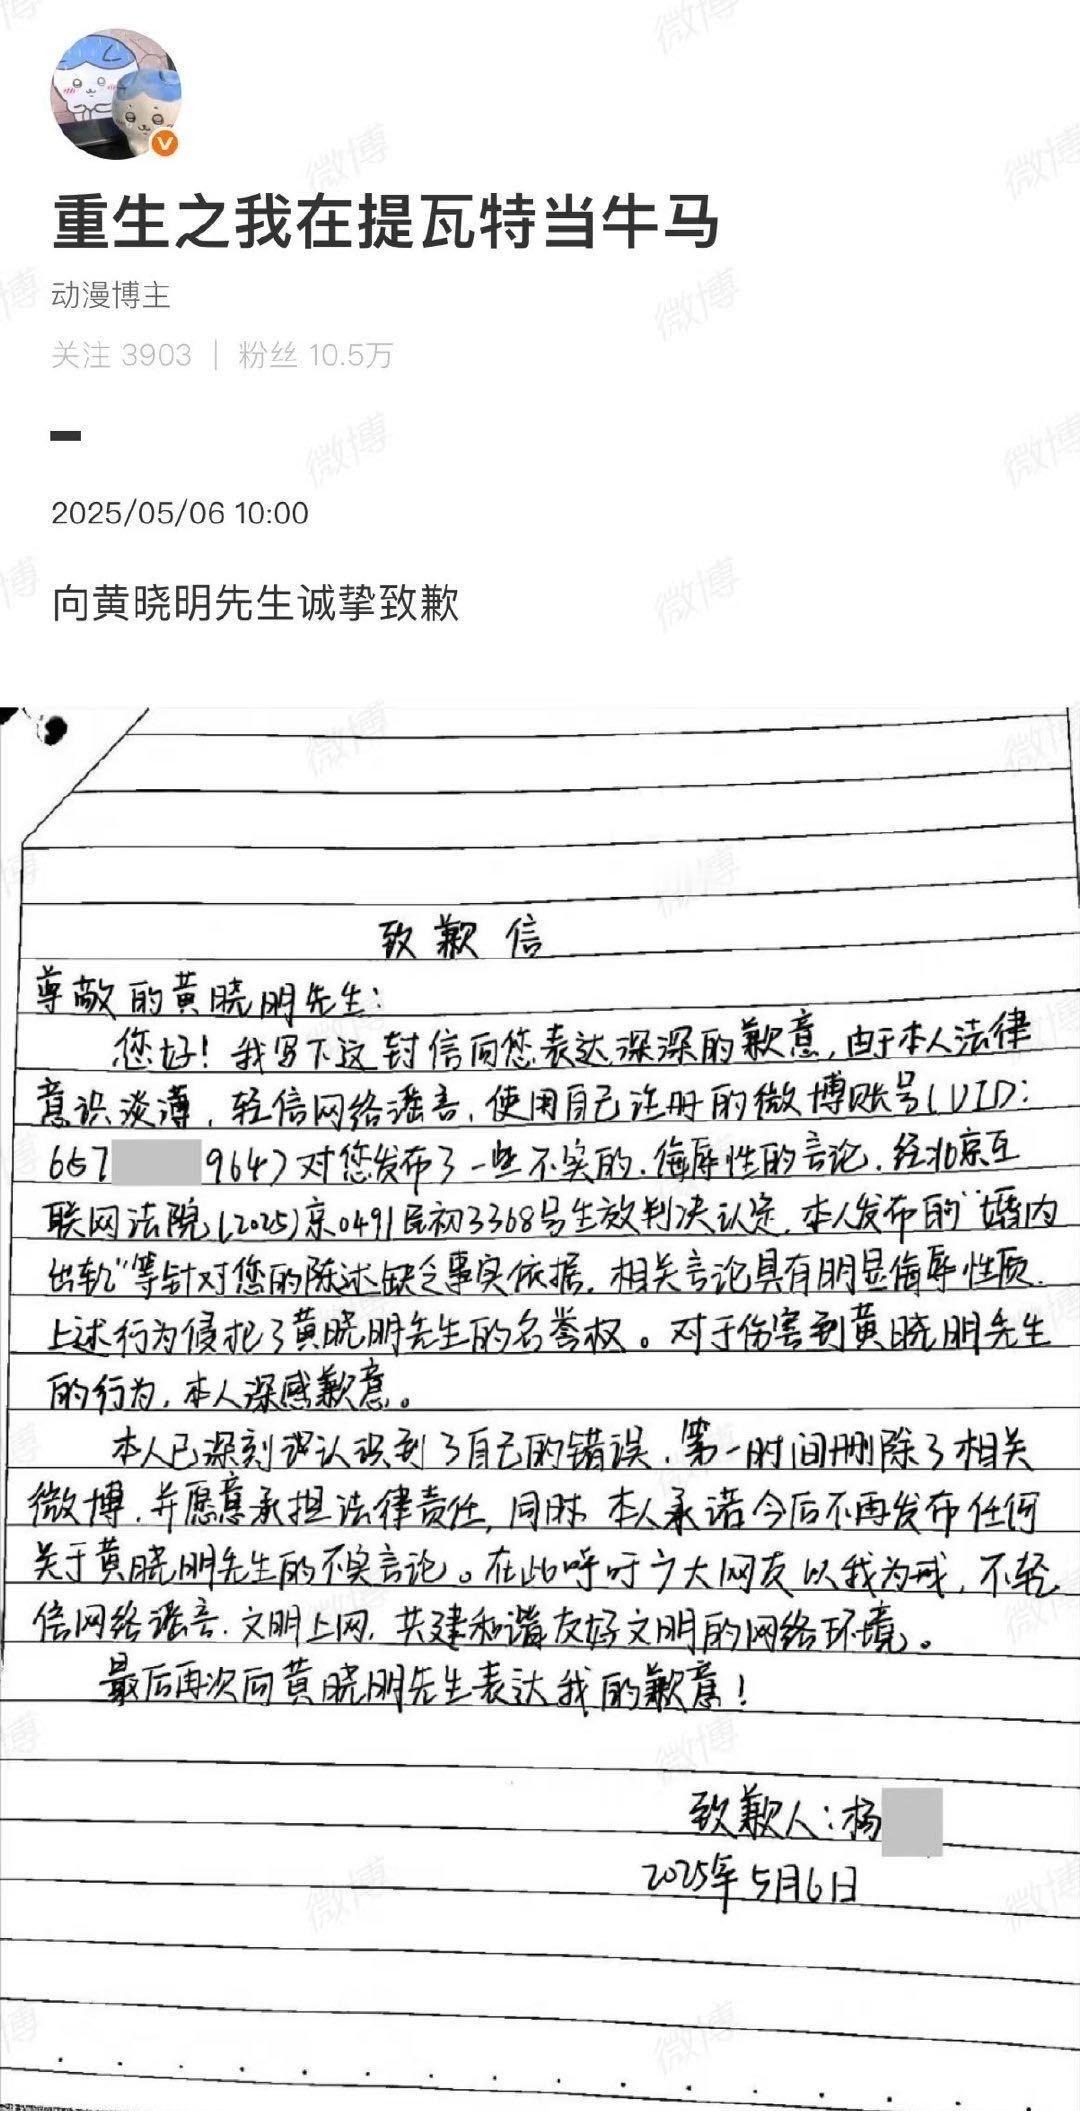 重生之我在提瓦特当牛马
动漫博主
关注 3903 | 粉丝 10.5万
2025/05/06 10:00
向黄晓明先生诚挚致歉
致歉信
尊敬的黄晓明先生：
您好！我写下这封信向您表达深深的歉意，由于本人法律
意识淡薄，轻信网络谣言，使用自己注册的微博账号(UID:
657 964)对您发布了一些不实的、侮辱性的言论，经北京互
联网法院(2025)京0491民初3368号生效判决认定，本人发布的"婚内
出轨"等针对您的陈述缺乏事实依据，相关言论具有明显侮辱性质，
上述行为侵犯了黄晓明先生的名誉权。对于伤害到黄晓明先生
的行为，本人深感歉意。
本人已深刻认识到了自己的错误，第一时间删除了相关
微博，并愿意承担法律责任，同时本人承诺今后不再发布任何
关于黄晓明先生的不实言论。在此呼吁广大网友以我为戒，不轻
信网络谣言，文明上网，共建和谐友好文明的网络环境。
最后再次向黄晓明先生表达我的歉意！
致歉人：杨
2025年5月6日
微博